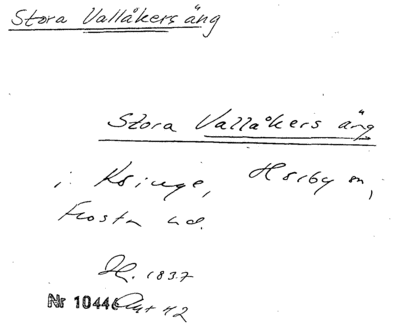 Stora Vallåkers äng
Stora Vallåkers äng
i Ksinge, Hörby sn,
Frosta hd.
H. 1837
Nr 10446 Akt 42